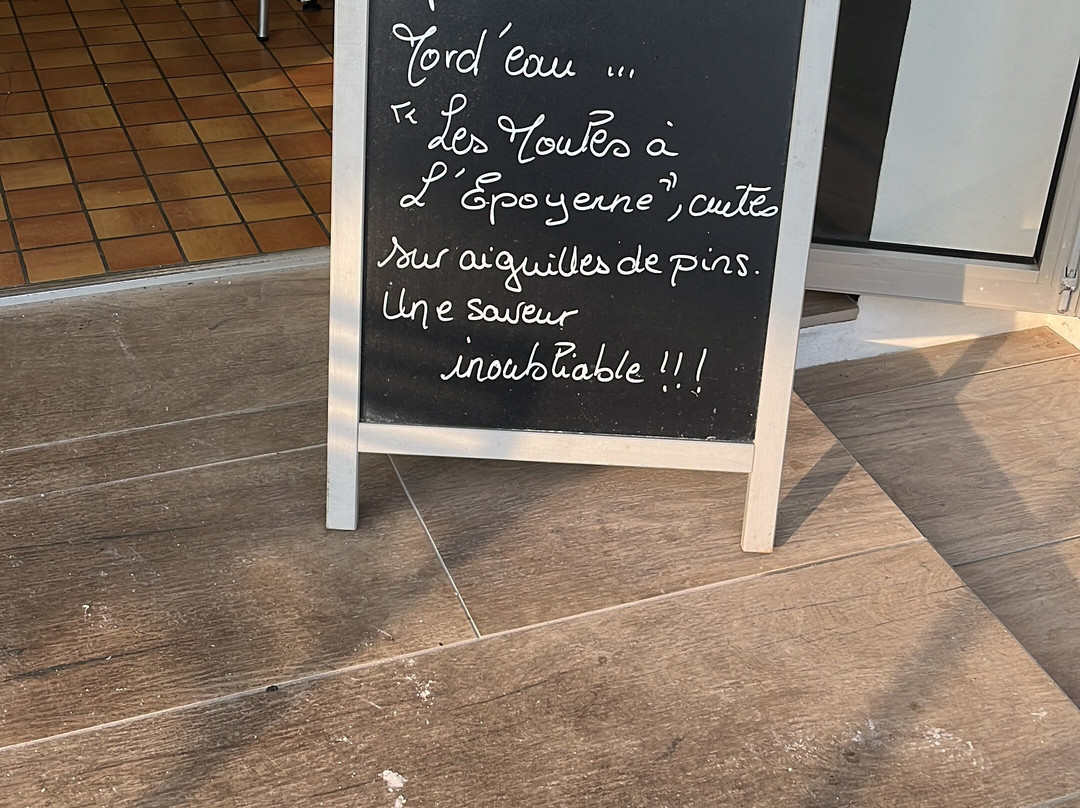 Mord'eau ...
"Les Moules à
L'Epoyenne", cuites
sur aiguilles de pins.
Une saveur
inoubliable !!!